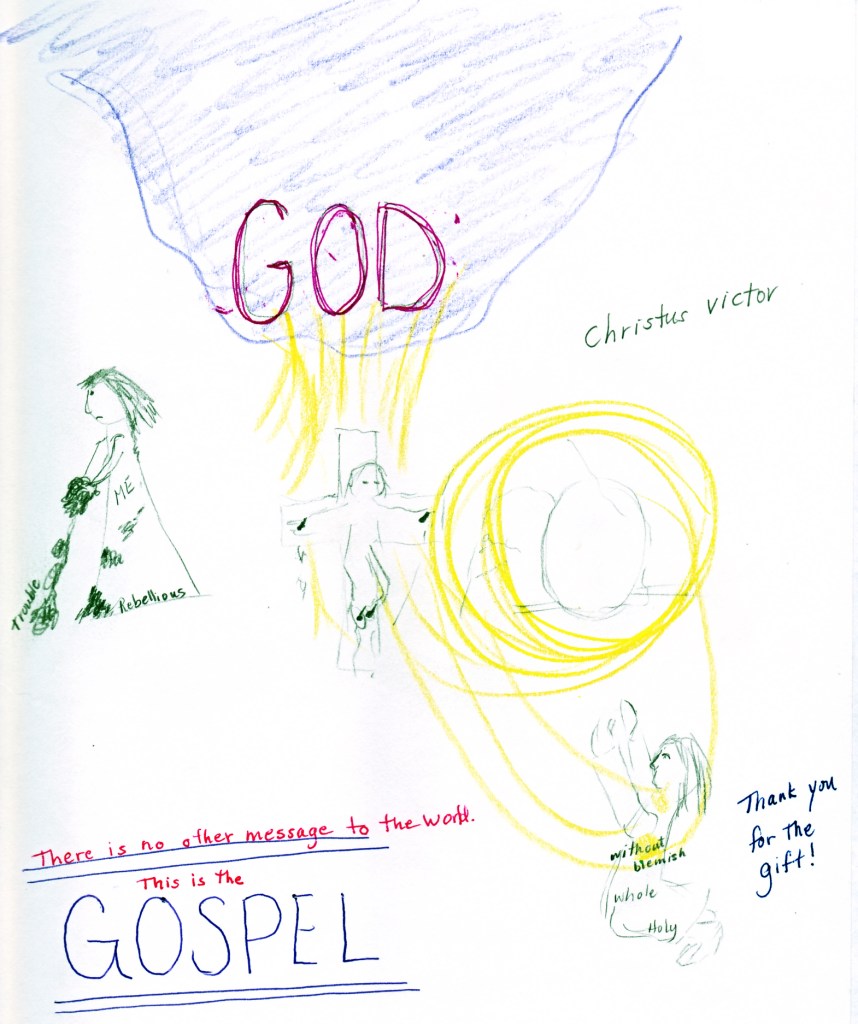 GOD
Christus victor
ME
Trouble
Rebellious
without
blemish
whole
Holy
Thank you
for the
gift!
There is no other message to the world.
This is the
GOSPEL